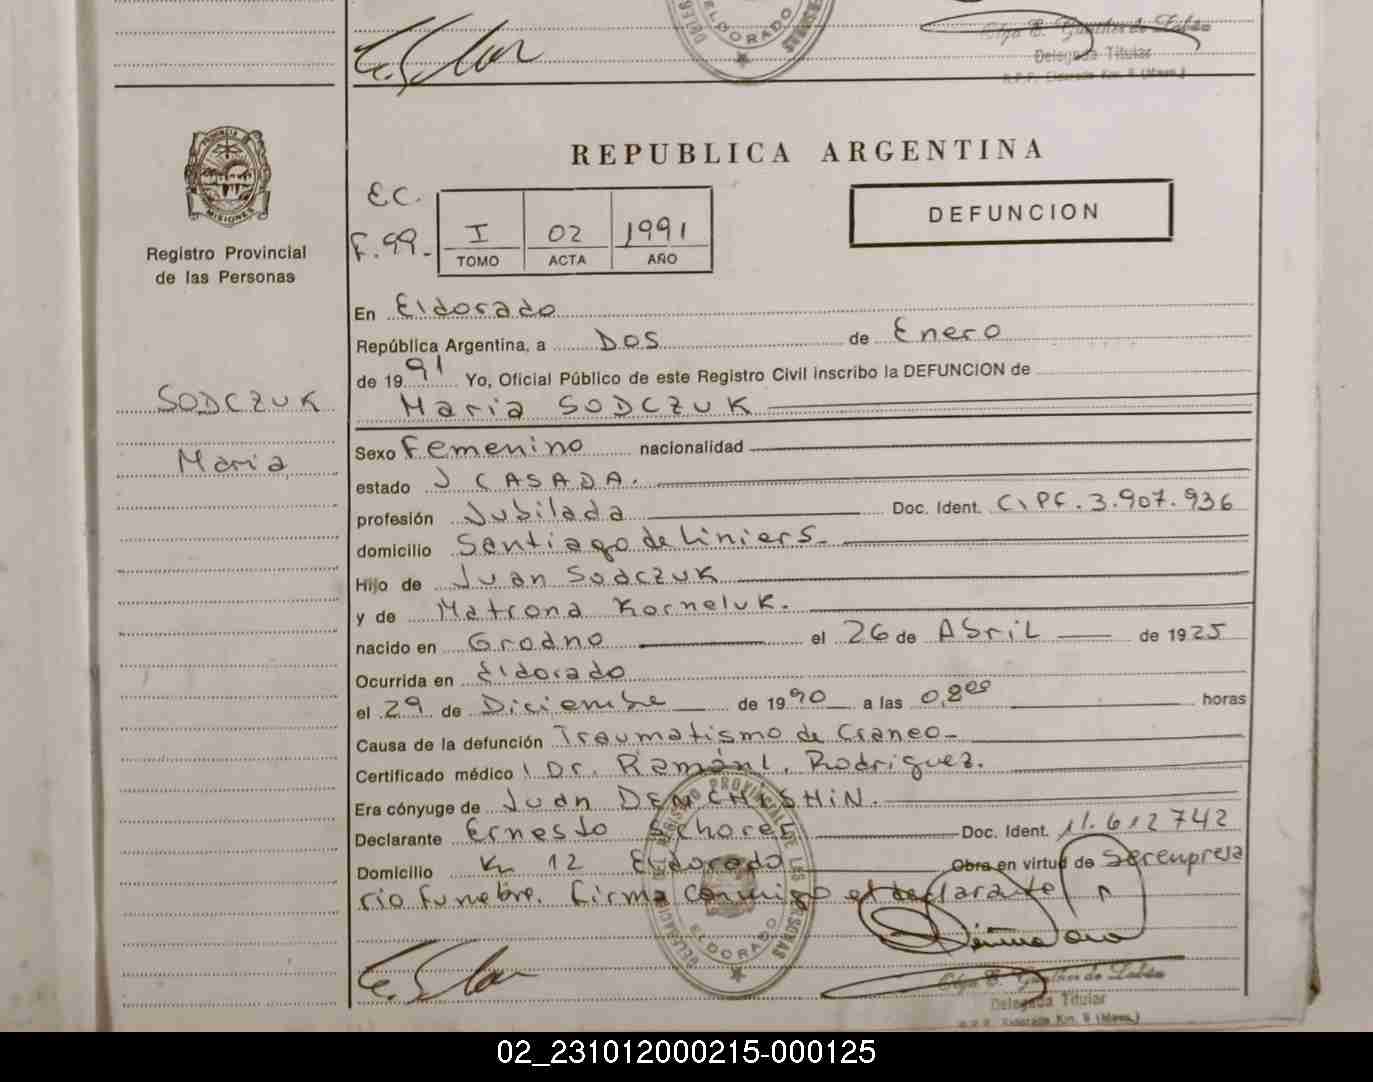 ELDORADO
Olga E. Gunther de Labán
Delegada Titular
R.P.P. Eldorado Km. 9 (Mnes.)
PROVINCIA DE
MISIONES
Registro Provincial
de las Personas
SODCZUK
Maria
REPUBLICA ARGENTINA
E.C.
F. 99.-
I 02 1991
TOMO ACTA AÑO
DEFUNCION
En Eldorado
República Argentina, a DOS de Enero
de 1991 Yo, Oficial Público de este Registro Civil inscribo la DEFUNCION de
Maria SODCZUK
Sexo Femenino nacionalidad
estado CASADA.
profesión Jubilada Doc. Ident. C.I.P.F. 3.907.936
domicilio Santiago de Liniers.-
Hijo de Juan Sodczuk
y de Matrona Korneluk.
nacido en Grodno el 26 de Abril de 1925
Ocurrida en Eldorado
el 29 de Diciembre de 1990 a las 0,8⁰⁰ horas
Causa de la defunción Traumatismo de Craneo-
Certificado médico Dr. Ramón I. Rodriguez.
Era cónyuge de Juan DEMCHISHIN.
Declarante Ernesto Schorel Doc. Ident. 11.612742
Domicilio Km 12 Eldorado Obra en virtud de Ser empresa
rio funebre. Firma conmigo el declarante
REGISTRO PROVINCIAL DE LAS PERSONAS
DELEGACION
ELDORADO
Olga E. Gunther de Labán
Delegada Titular
R.P.P. Eldorado Km. 9 (Mnes.)
02_231012000215-000125